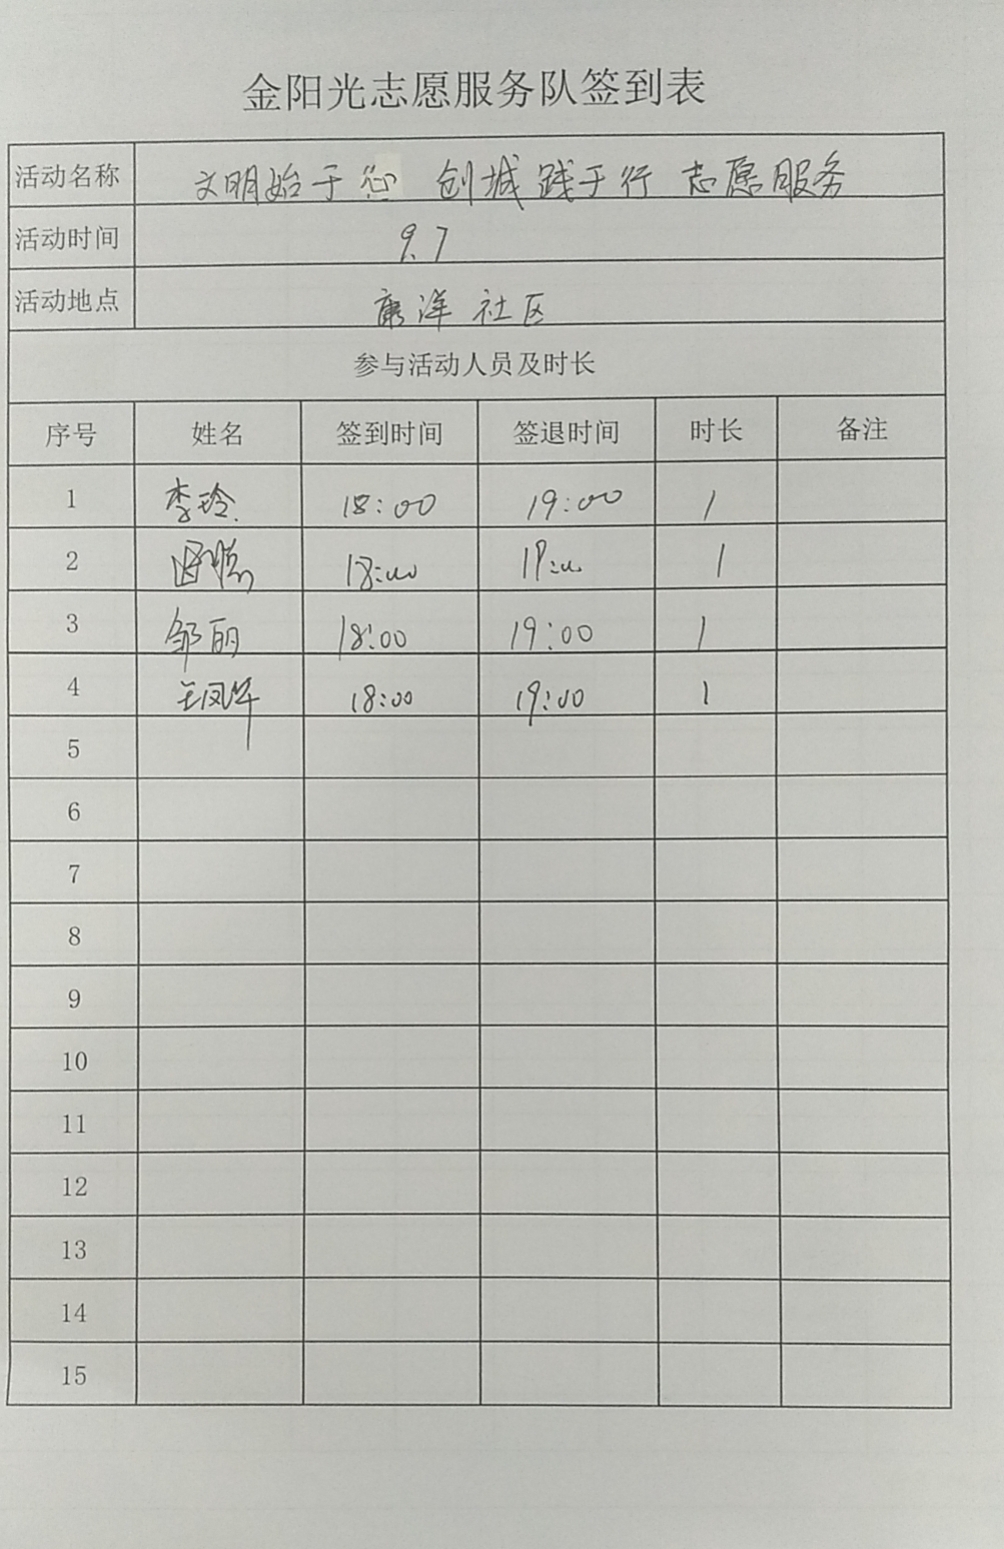 金阳光志愿服务队签到表
活动名称 文明始于心 创城践于行 志愿服务
活动时间 9.7
活动地点 康洋社区
参与活动人员及时长
序号 姓名 签到时间 签退时间 时长 备注
1 李玲 18:00 19:00 1
2 18:00 19:00 1
3 邹丽 18:00 19:00 1
4 王凤华 18:00 19:00 1
5
6
7
8
9
10
11
12
13
14
15